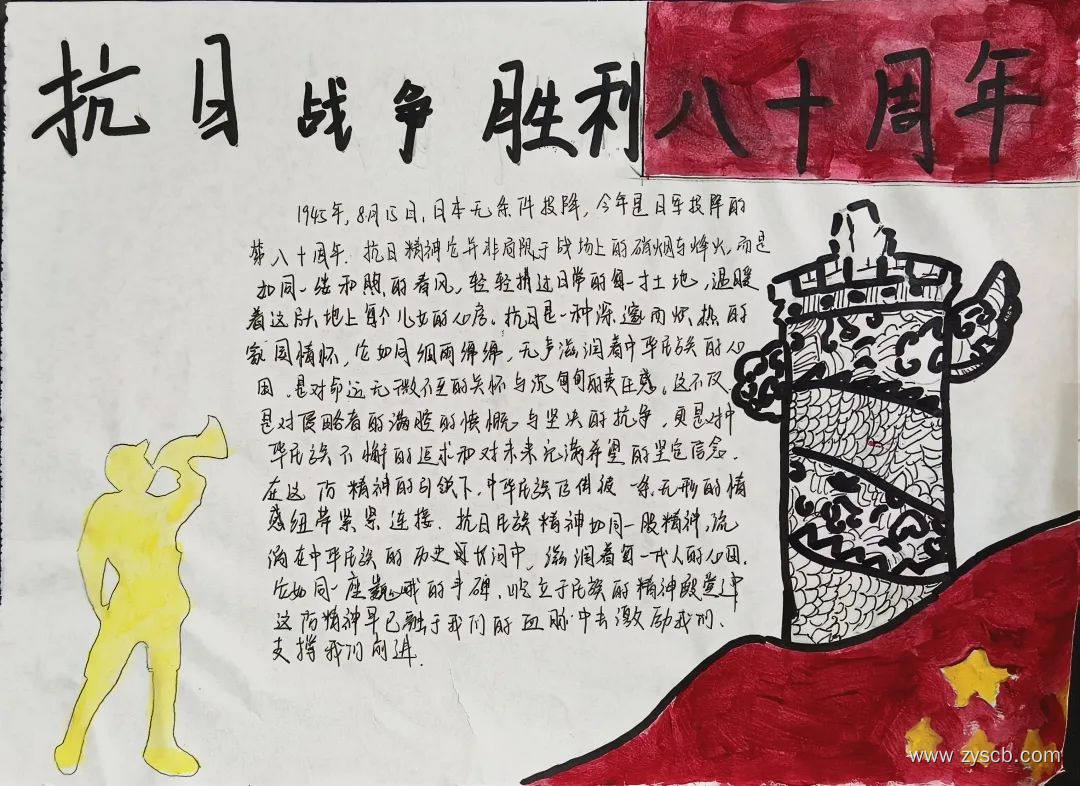 抗日战争胜利八十周年
1945年,8月15日,日本无条件投降,今年是日军投降的
第八十周年.抗日精神它并非局限于战场上的硝烟与烽火,而是
如同一缕和煦的春风,轻轻拂过日常的每一寸土地,温暖
着这片大地上每个儿女的心房。抗日是一种深邃而炽热的
家国情怀,它如同细雨绵绵,无声滋润着中华民族的心
田.是对命运无微不至的关怀与沉甸甸的责任感。这不仅
是对侵略者的满腔的愤慨与坚决的抗争,更是对中
华民族不懈的追求和对未来充满希望的坚定信念.
在这份精神的引领下,中华民族正借彼一条无形的情
感纽带紧紧连接.抗日民族精神如同一股精神,流
淌在中华民族的历史长河中,滋润着每一代人的心田.
它如同一座巍峨的丰碑,屹立于民族的精神殿堂中
这份精神早已融于我们的血脉中去激励我们、
支撑我们前进.
www.zyscb.com